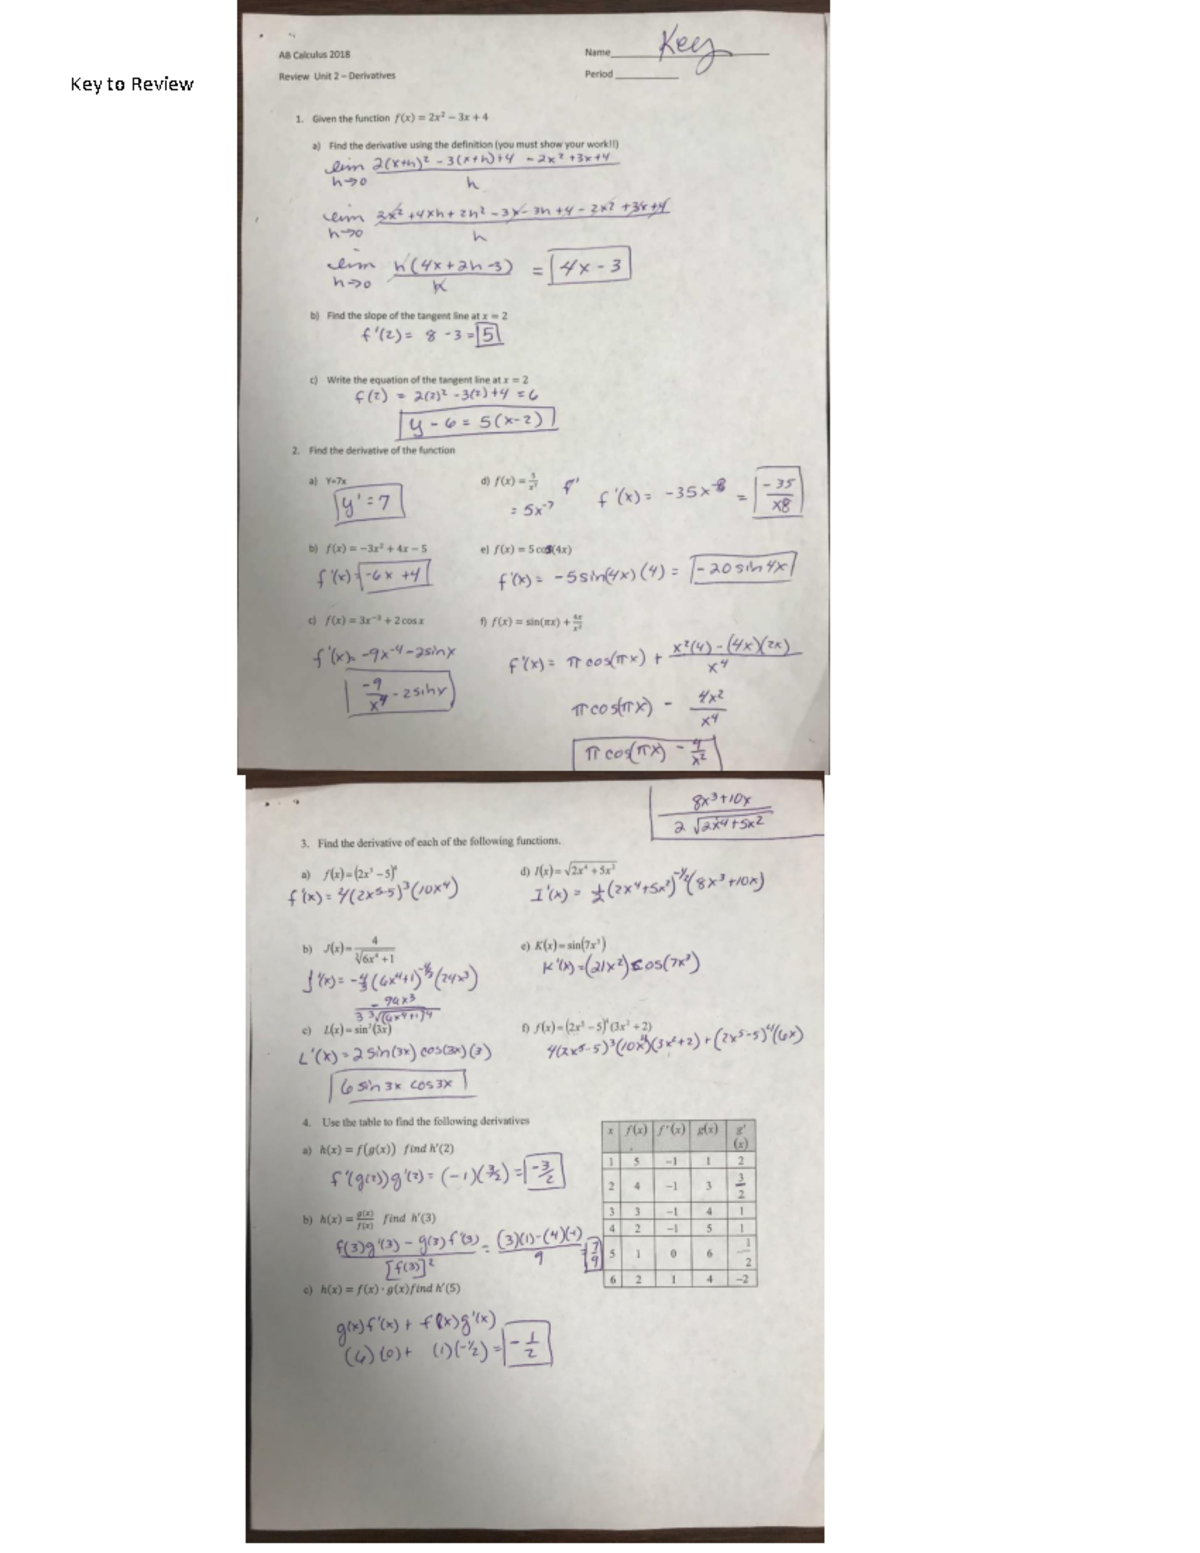 Key to Review
AB Calculus 2018
Name Key
Review Unit 2 – Derivatives
Period
1. Given the function f(x) = 2x² − 3x + 4
a) Find the derivative using the definition (you must show your work!!)
lim h→0 2(x+h)² - 3(x+h)+4 - 2x² +3x+4 / h
lim h→0 2x² +4xh + 2h² - 3x - 3h +4 - 2x² + 3x +4 / h
lim h→0 h(4x+2h-3) / h = 4x - 3
b) Find the slope of the tangent line at x = 2
f'(2) = 8 - 3 = 5
c) Write the equation of the tangent line at x = 2
f(2) = 2(2)² - 3(2) + 4 = 6
y - 6 = 5(x-2)
2. Find the derivative of the function
a) Y=7x
y' = 7
d) f(x) = 5/x⁷
= 5x⁻⁷
f'
f'(x) = -35x⁻⁸ = -35/x8
b) f(x) = −3x² + 4x − 5
f'(x) = -6x +4
e) f(x) = 5 cos(4x)
f'(x) = -5sin(4x)(4) = -20 sin 4x
c) f(x) = 3x⁻³ + 2 cos x
f'(x) = -9x⁻⁴ - 2sinx
-9/x⁴ - 2sinx
f) f(x) = sin(πx) + 4x/x²
f'(x) = π cos(πx) + x²(4) - (4x)(2x) / x⁴
π cos(πx) - 4x²/x⁴
π cos(πx) - 4/x²
8x³+10x / 2 √2x⁴+5x²
3. Find the derivative of each of the following functions.
a) f(x)=(2x⁵ −5)⁴
f'(x) = 4(2x⁵-5)³(10x⁴)
d) I(x)=√2x⁴ + 5x²
I'(x) = ½(2x⁴+5x²)^-½(8x³+10x)
b) J(x)= 4/∛6x⁴ +1
J'(x) = -4/3(6x⁴+1)^-4/3(24x³)
-96x³ / 3 ∛(6x⁴+1)4
e) K(x)=sin(7x³)
K'(x) = (21x²)cos(7x³)
c) L(x)=sin²(3x)
L'(x) = 2 sin(3x) cos(3x)(3)
6 sin 3x cos3x
f) f(x)=(2x⁵ −5)⁴(3x² +2)
4(2x⁵-5)³(10x⁴)(3x²+2) + (2x⁵-5)⁴(6x)
4. Use the table to find the following derivatives
a) h(x) = f(g(x)) find h'(2)
f'(g(2))g'(2) = (-1)(3/2) = -3/2
b) h(x) = g(x)/f(x) find h'(3)
f(3)g'(3) - g(3)f'(3) / [f(3)]² = (3)(1)-(4)(-1) / 9 = 7/9
c) h(x) = f(x) · g(x) find h'(5)
g(x)f'(x) + f(x)g'(x)
(6)(0) + (1)(-½) = -1/2
x f(x) f'(x) g(x) g'(x)
1 5 −1 1 2
2 4 −1 3 3/2
3 3 −1 4 1
4 2 −1 5 1
5 1 0 6 −1/2
6 2 1 4 −2